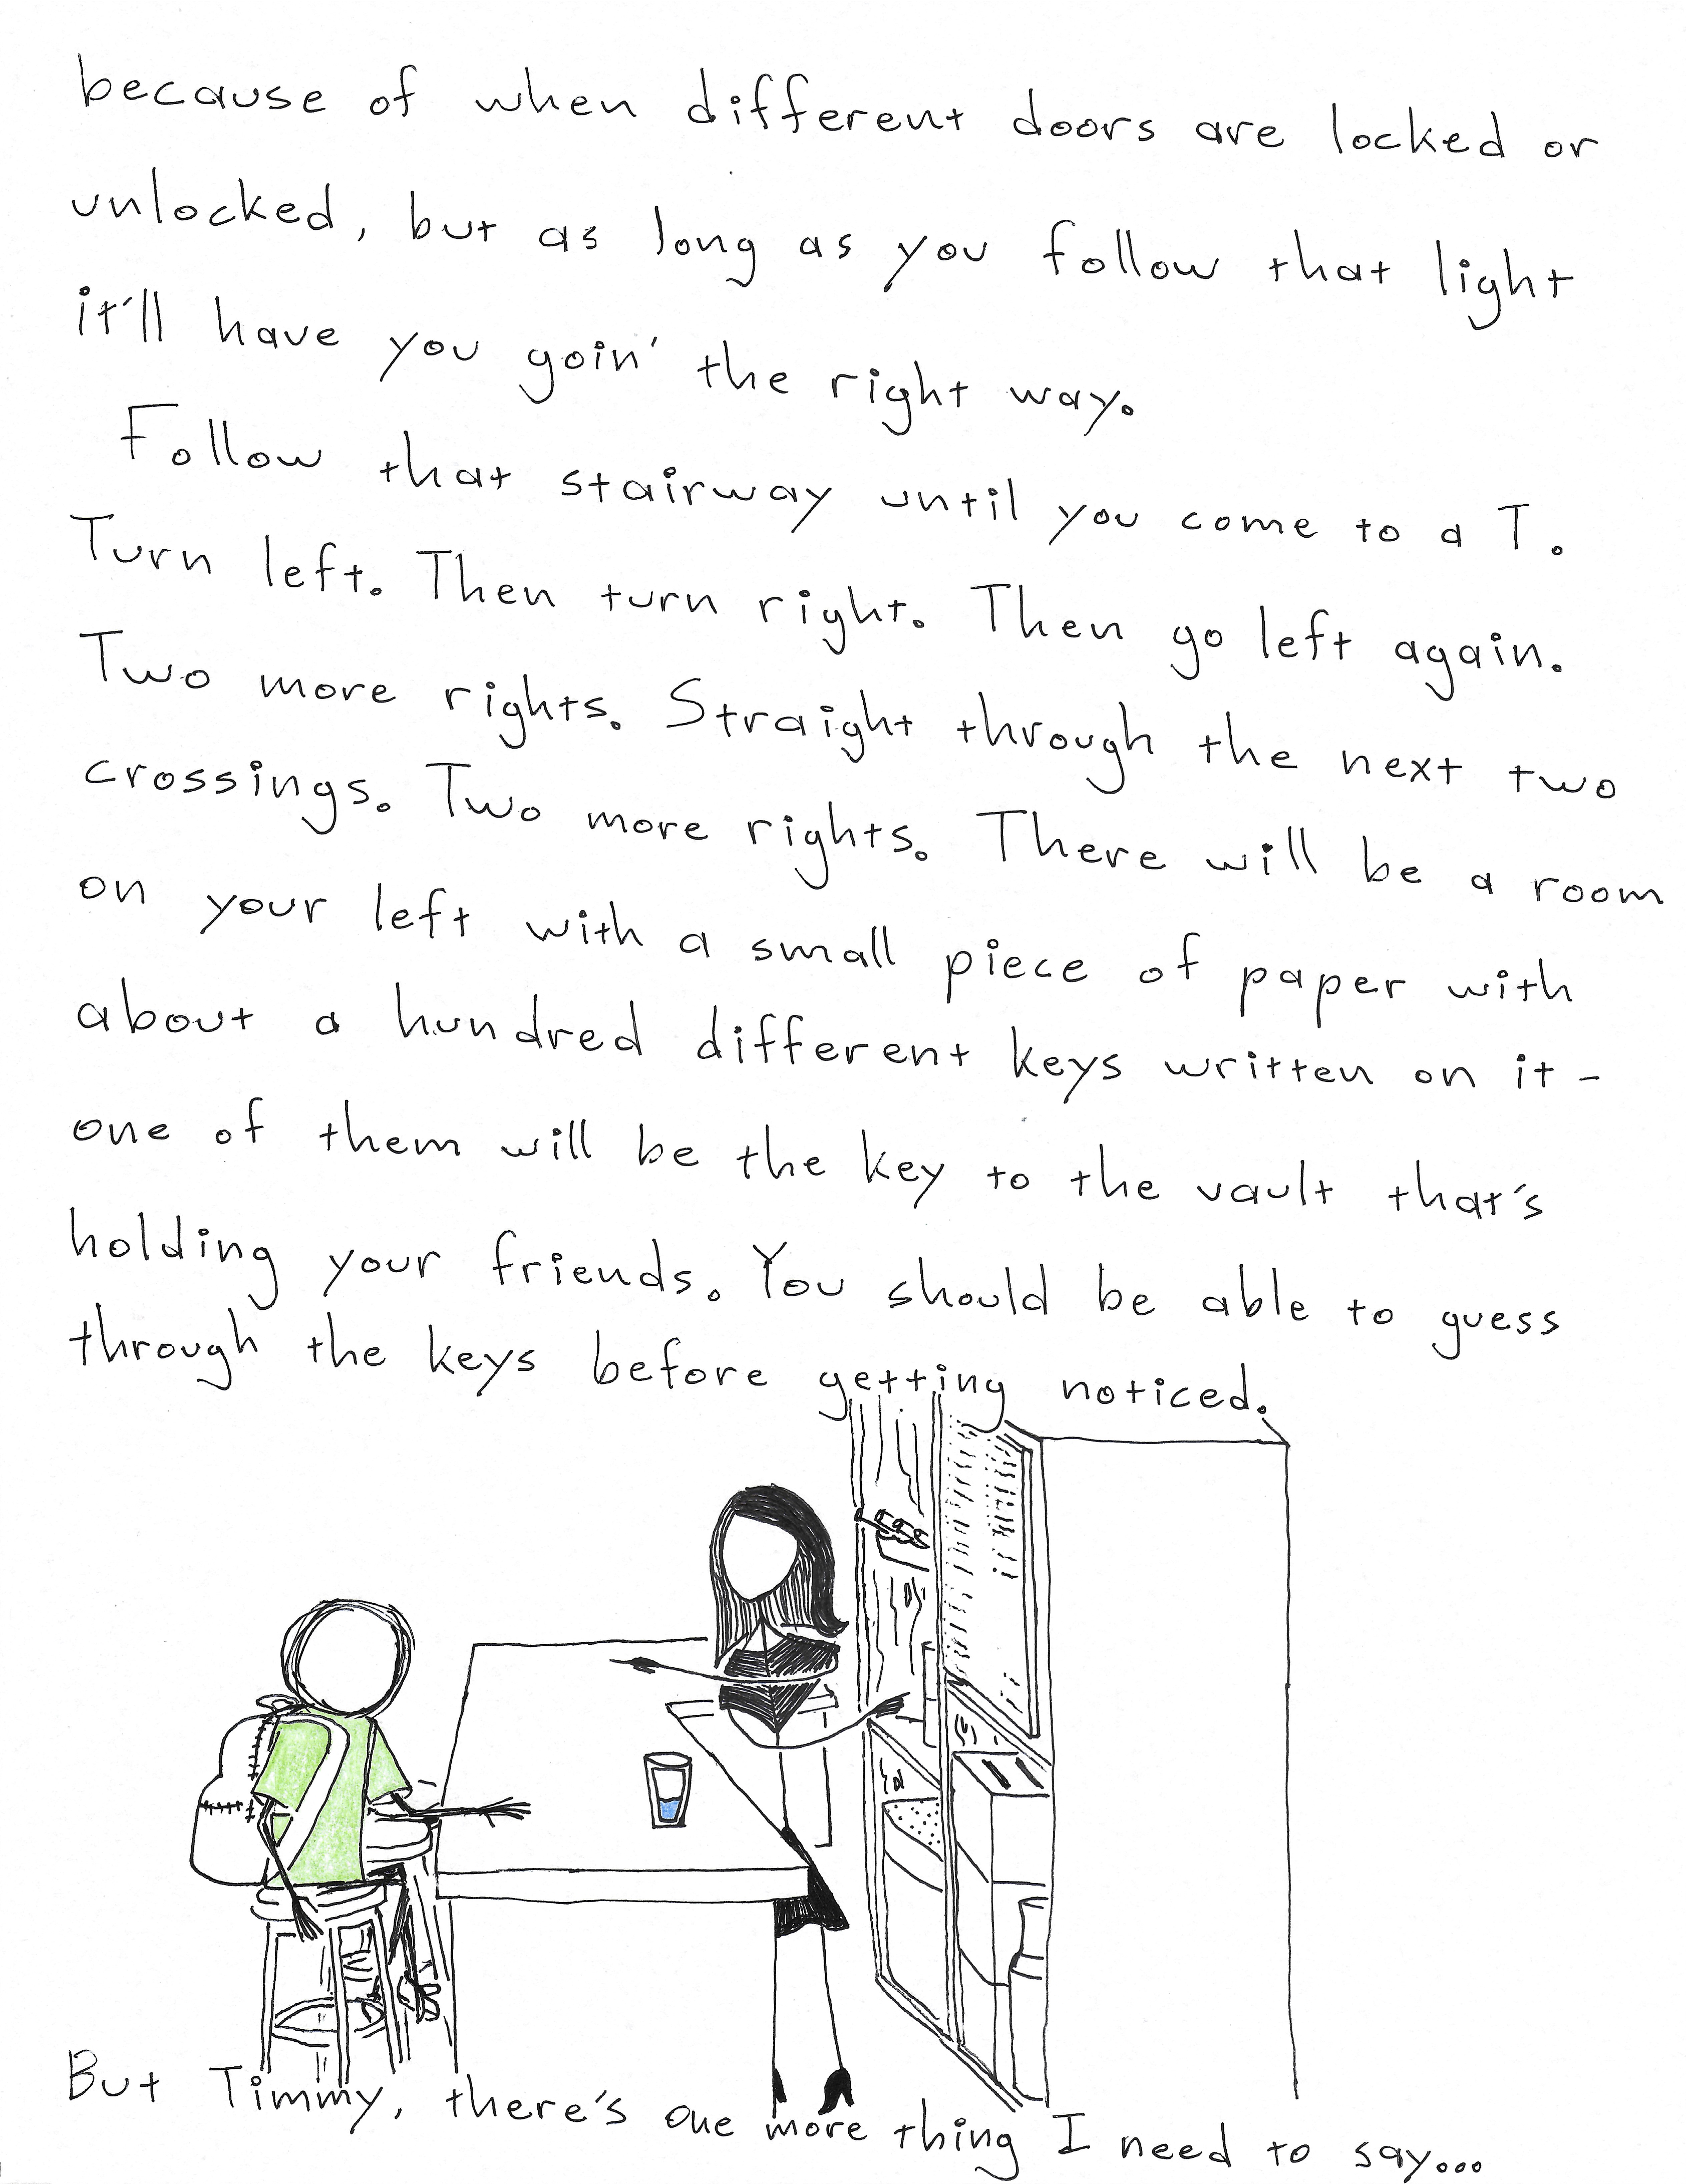 because of when different doors are locked or
unlocked, but as long as you follow that light
it'll have you goin' the right way.
Follow that stairway until you come to a T.
Turn left. Then turn right. Then go left again.
Two more rights. Straight through the next two
crossings. Two more rights. There will be a room
on your left with a small piece of paper with
about a hundred different keys written on it -
one of them will be the key to the vault that's
holding your friends. You should be able to guess
through the keys before getting noticed.
But Timmy, there's one more thing I need to say...